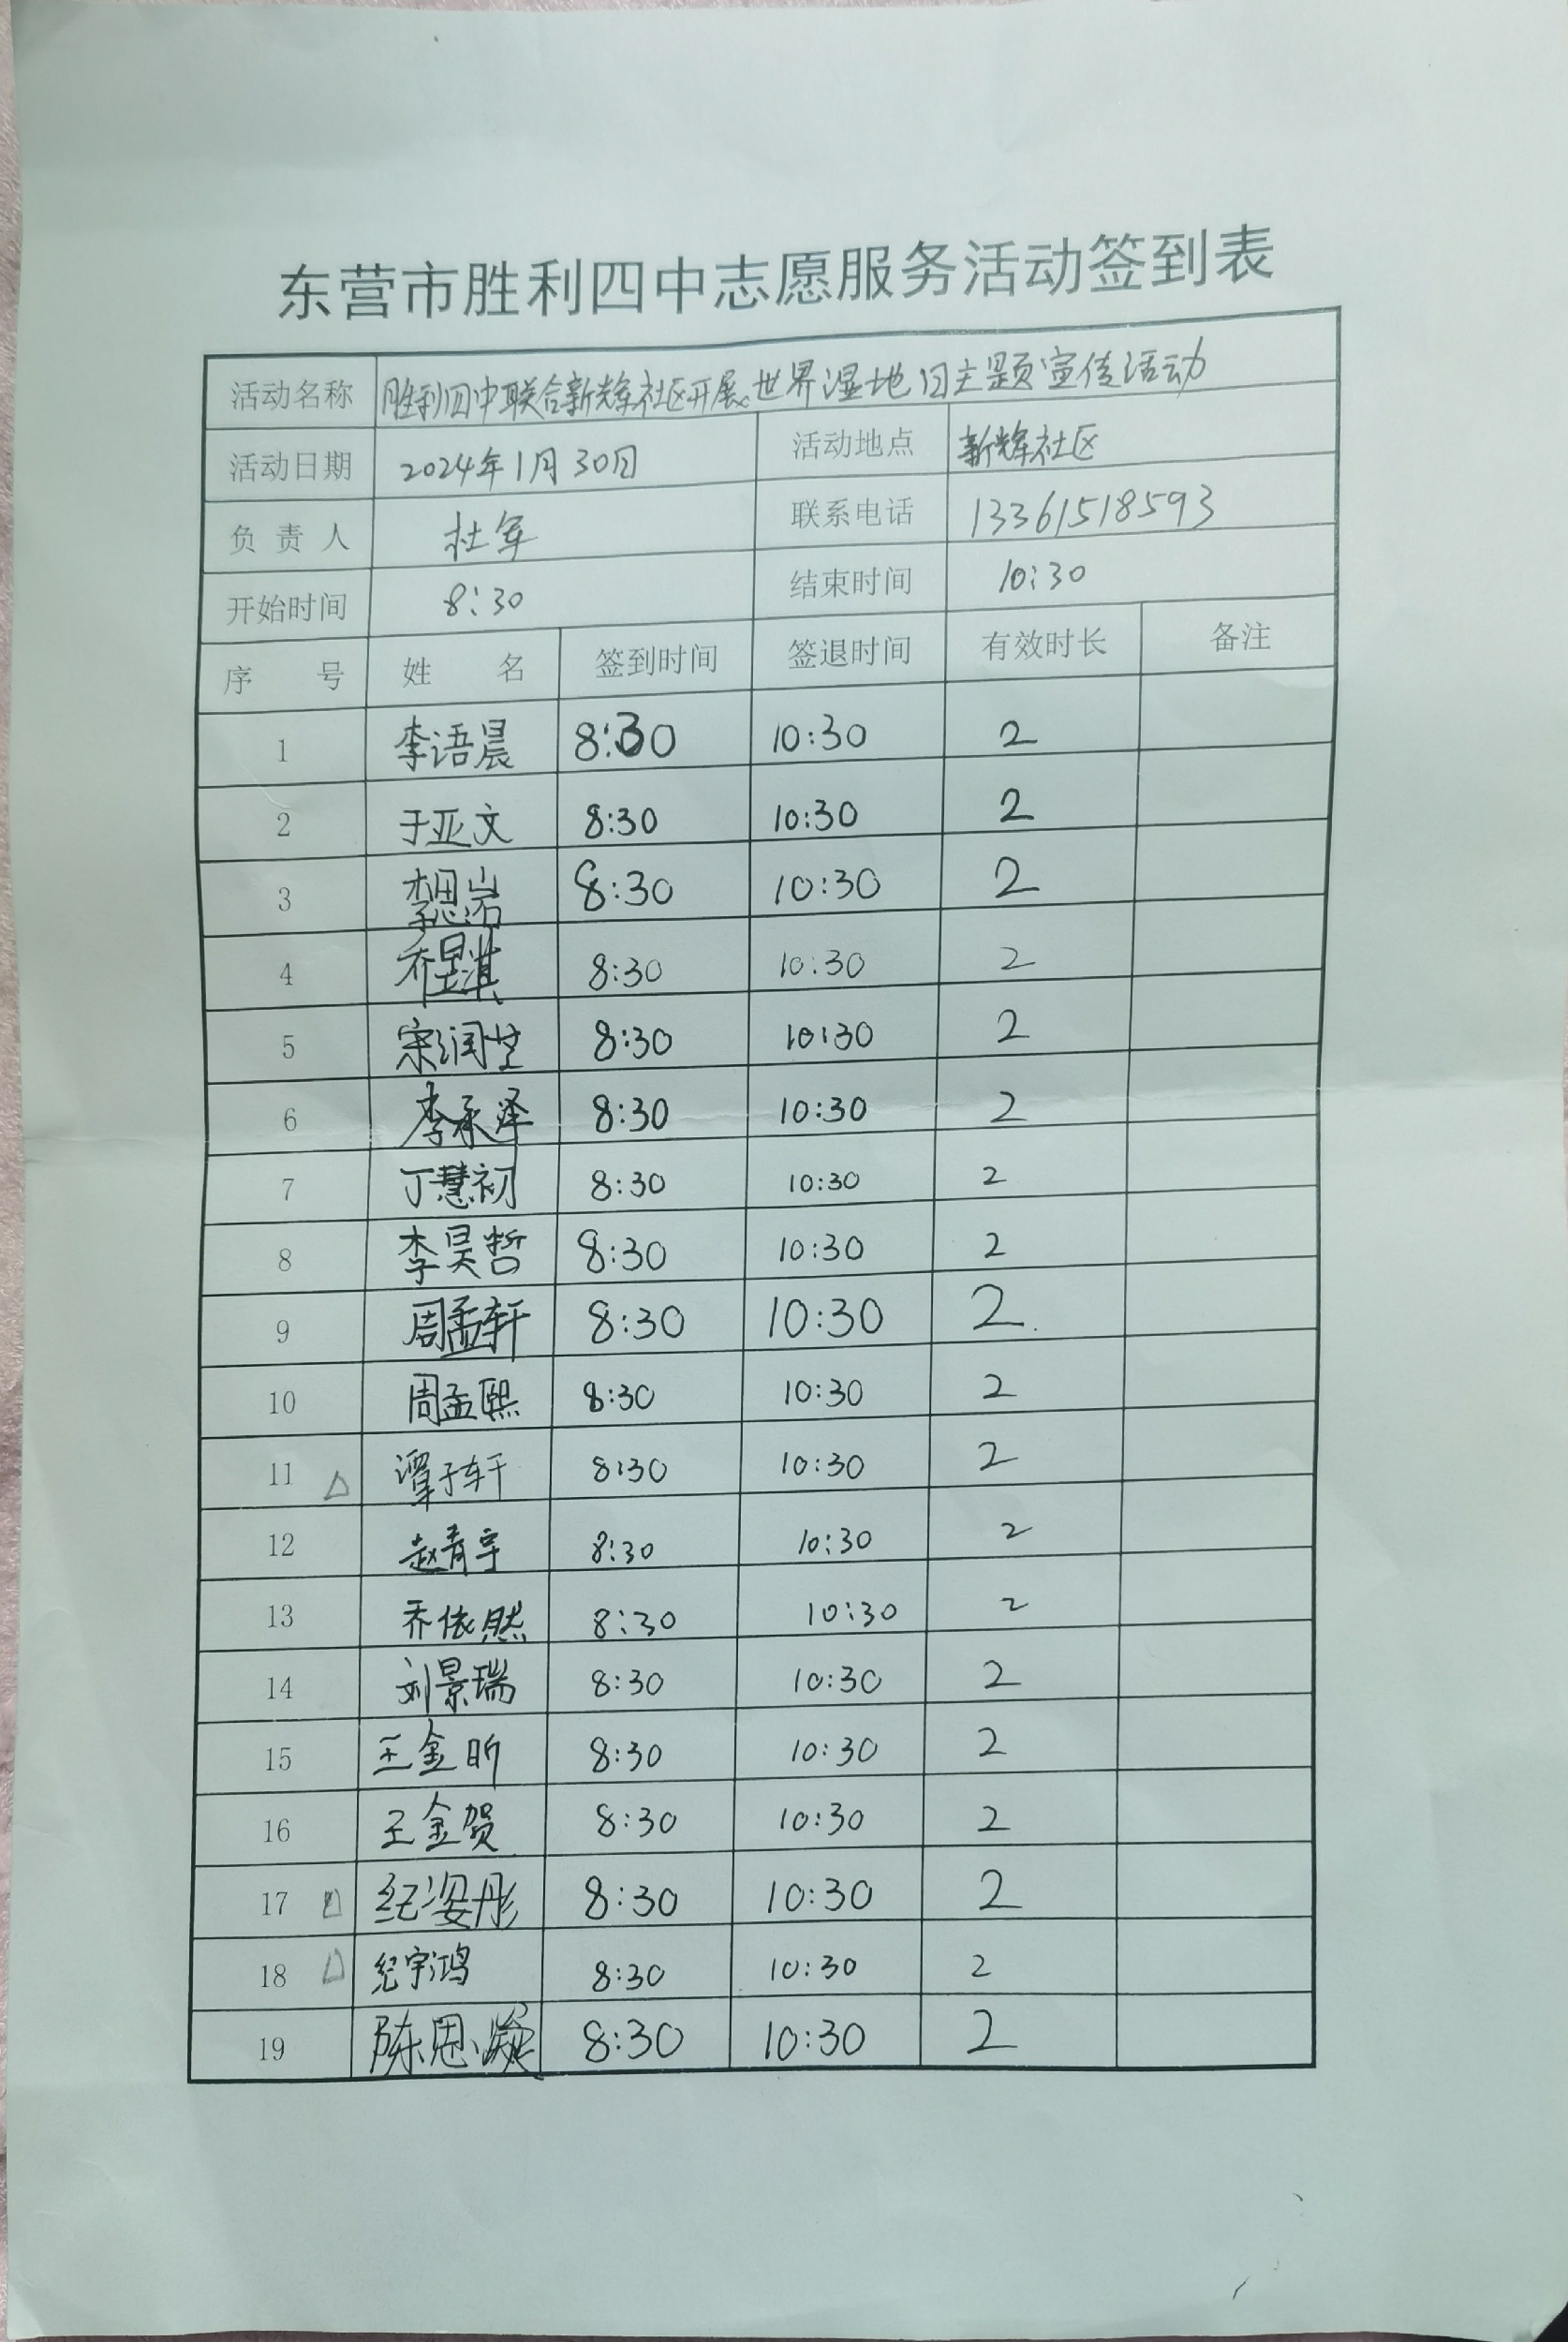 东营市胜利四中志愿服务活动签到表
活动名称 胜利四中联合新辉社区开展世界湿地日主题宣传活动
活动日期 2024年1月30日 活动地点 新辉社区
负责人 杜军 联系电话 13361518593
开始时间 8:30 结束时间 10:30
序号 姓名 签到时间 签退时间 有效时长 备注
1 李语晨 8:30 10:30 2
2 于亚文 8:30 10:30 2
3 李思岩 8:30 10:30 2
4 乔昱淇 8:30 10:30 2
5 宋润芝 8:30 10:30 2
6 李承泽 8:30 10:30 2
7 丁慧初 8:30 10:30 2
8 李昊哲 8:30 10:30 2
9 周孟轩 8:30 10:30 2
10 周孟熙 8:30 10:30 2
11 △ 覃子轩 8:30 10:30 2
12 赵青宇 8:30 10:30 2
13 乔依然 8:30 10:30 2
14 刘景瑞 8:30 10:30 2
15 王金昕 8:30 10:30 2
16 王金贺 8:30 10:30 2
17 纪姿彤 8:30 10:30 2
18 △ 纪宇鸿 8:30 10:30 2
19 陈思 8:30 10:30 2